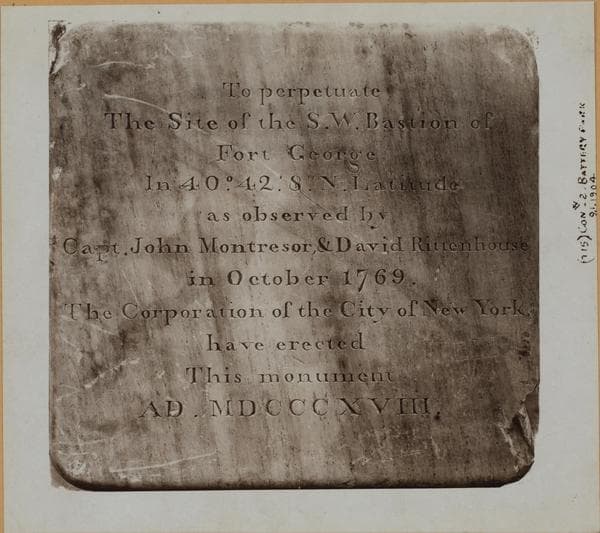 To perpetuate
The Site of the S.W. Bastion of
Fort George
In 40°.42'.8" N. Latitude
as observed by
Capt. John Montresor, & David Rittenhouse
in October 1769.
The Corporation of the City of New York,
have erected
This monument
AD. MDCCCXVIII.
(715) CON #2. BATTERY PARK
1904